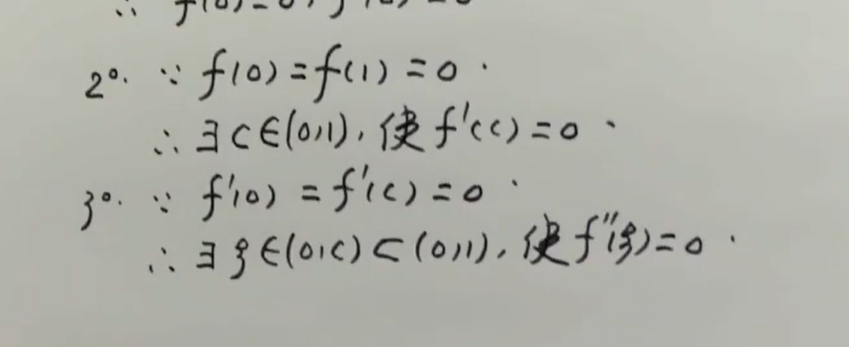 ∴ f(0)=0, f'(0)=0
2°. ∵ f(0)=f(1)=0.
∴ ∃ c∈(0,1), 使 f'(c)=0.
3°. ∵ f'(0)=f'(c)=0.
∴ ∃ ξ∈(0,c)⊂(0,1), 使 f''(ξ)=0.